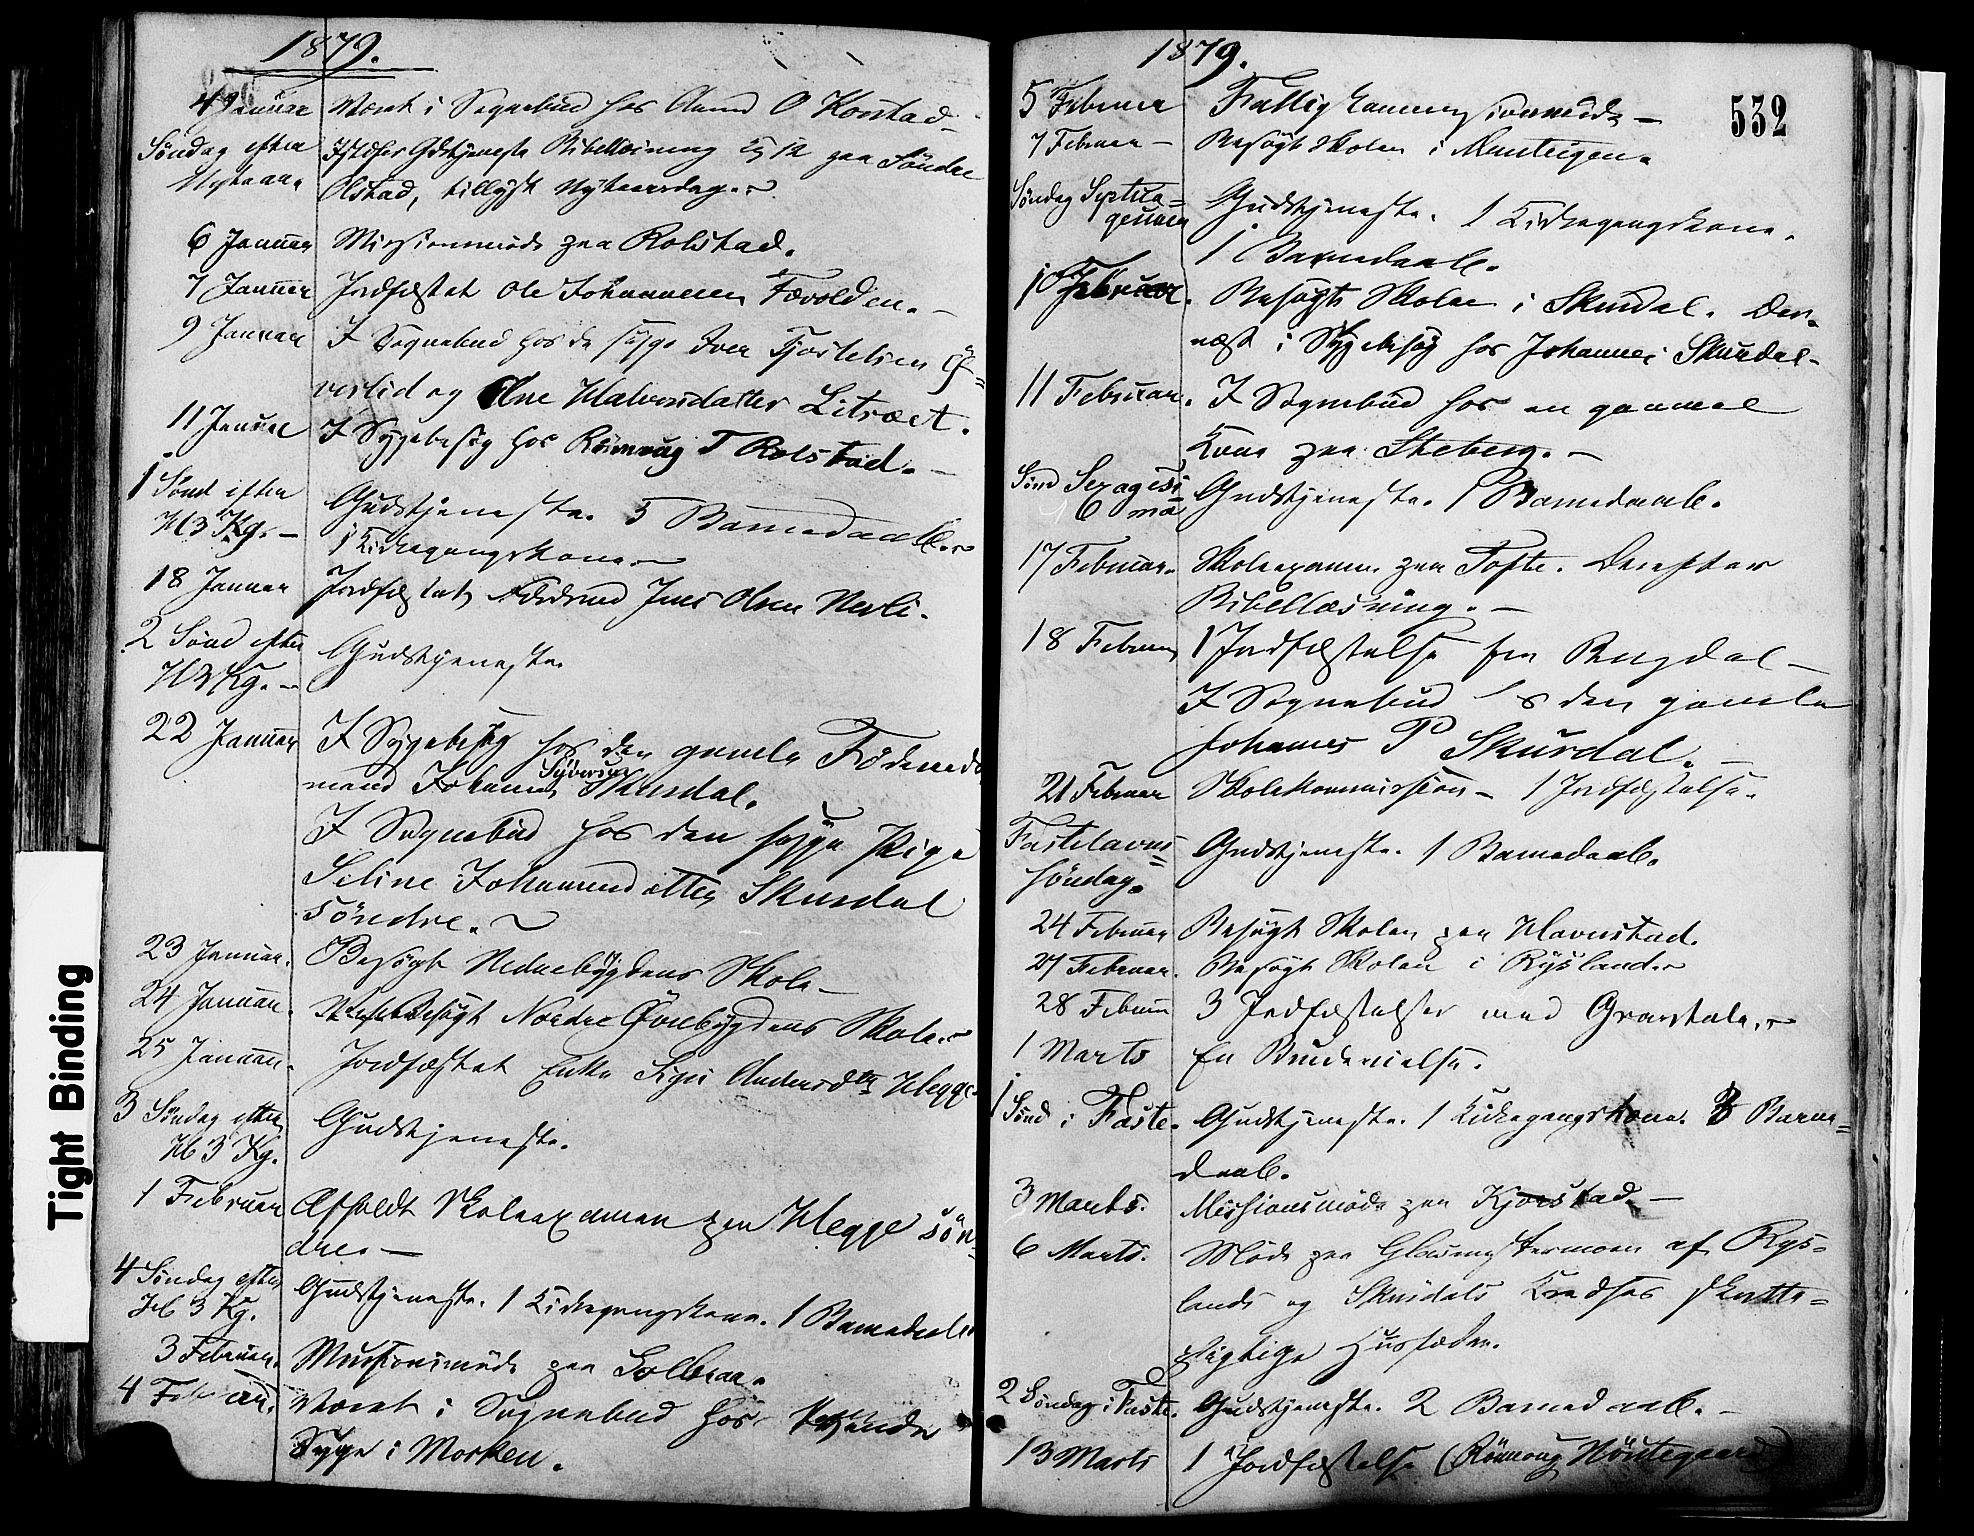 1879.
4 Januar Været i Sognebud hos Amund O Korstad
Søndag efter Nytaar. Istedfor Gudstjeneste Bibellæsning Kl 12 paa Søndre
Olstad, tillyst Nytaarsdag.
6 Januar Missionsmøde paa Rolstad.
7 Januar Jordfæstet Ole Johannesen Fævolden. —
9 Januar I Sognebud hos de syge Iver Tjostelsen Ø=
verlid og Ane Halvorsdatter Litræet.
11 Januar I Sygebesøg hos Rønnaug T Rolstad. —
1 Sønd efter H 3 Kg. — Gudstjeneste. 5 Barnedaab.
1 Kirkegangskone. —
18 Januar Jordfæstet Jens Olsen Nerli.
2 Sønd efter H 3 Kg. — Gudstjeneste.
22 Januar I Sygebesøg hos den gamle Føderaads
mand Johannes Syversen Skurdal.
I Sognebud hos den syge Pige
Seline Johannesdatter Skurdal
søndre.
23 Januar. Besøgt Nedrebygdens Skole —
24 Januar. Besøgt Nordre Øvrebygdens Skole.
25 Januar. Jordfæstet Enke Sigri Andersdtr Hegge
3 Søndag efter H 3 Kg. Gudstjeneste.
1 Februar Afholdt Skoleexamen paa Hegge søn=
dre. —
4 Søndag efter H 3 Kg. Gudstjeneste. 1 Kirkegangskone. 1 Barnedaab
3 Februar. Missionsmøde paa Solbraa.
4 Februar. Været i Sognebud hos
Syge i Morken.
Tight Binding
1879.
532
5 Februar Fattigkommissionsmøde —
7 Februar — Besøgt Skolen i Musteigen.
Søndag Septua=
gesima Gudstjeneste. 1 Kirkegangskone.
1 Barnedaab.
10 Februar. Besøgte Skolen i Skurdal. Der=
næst i Sygebesøg hos Johannes Skurdal —
11 Februar. I Sognebud hos en gammel
Kone paa Steberg. —
Sønd Sexagesi
ma Gudstjeneste. 1 Barnedaab.
17 Februar. Skoleexamen paa Tofte. Derefter
Bibellæsning. —
18 Februar 1 Jordfæstelse fra Bugdal —
I Sognebud hos den gamle
Johannes P Skurdal. —
21 Februar Skolekommission — 1 Jordfæstelse.
Fastelavns=
søndag. Gudstjeneste. 1 Barnedaab.
24 Februar Besøgt Skolen paa Havnstad.
27 Februar. Besøgt Skolen i Rysland.
28 Februar 3 Jordfæstelser med Gravtale.
1 Marts En Brudevielse.
1 Sønd i Faste. Gudstjeneste. 1 Kirkegangskone. 3 Barne=
daab.
3 Marts. Missionsmøde paa Kjorstad —
6 Marts. Møde paa Glomstadmoen af Rys=
lands og Skurdals Kredses skatte=
pligtige Husfædre.
2 Søndag i Faste. Gudstjeneste. 2 Barnedaab. —
13 Marts 1 Jordfæstelse (Rønnoug Nørstegaard)